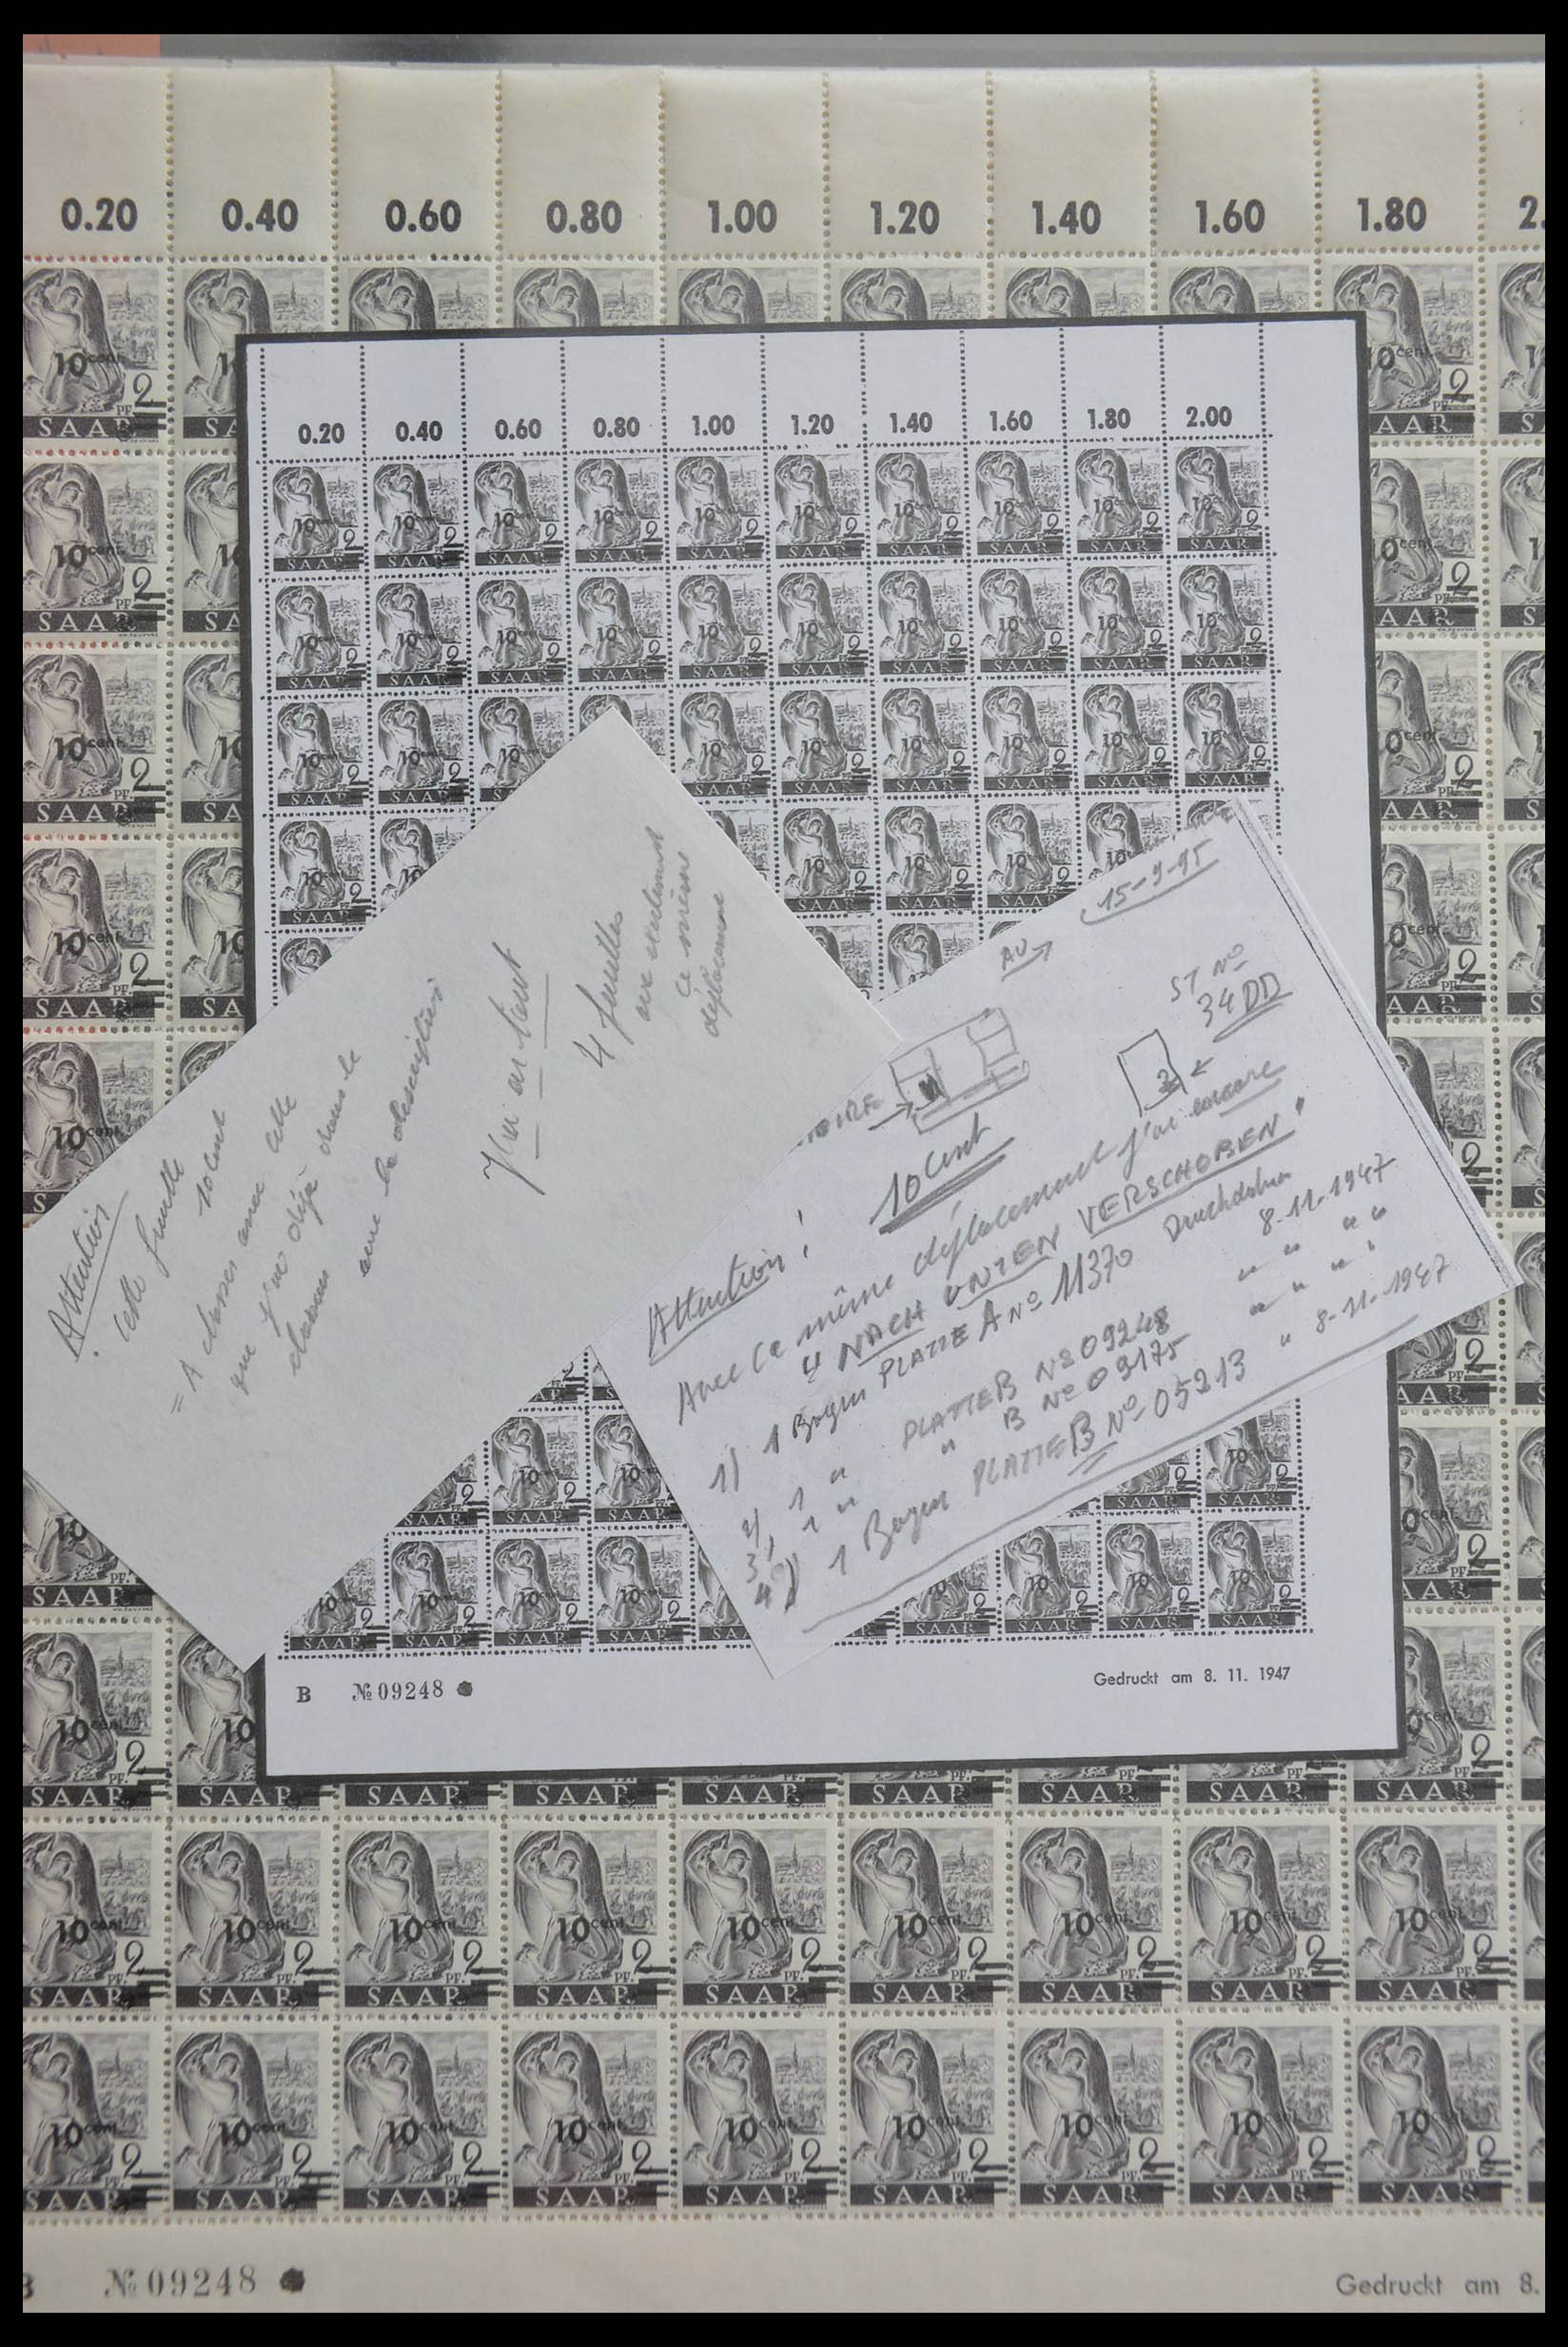 0.20 0.40 0.60 0.80 1.00 1.20 1.40 1.60 1.80 2.
10 cent 2 PF. SAAR
0.20 0.40 0.60 0.80 1.00 1.20 1.40 1.60 1.80 2.00
10 cent 2 PF. SAAR
B № 09248
Gedruckt am 8. 11. 1947
Attention
cette feuille
10 cent
= A classer avec celle
que j'ai déjà dans le
classeur
avec la description
J'ai en tout
4 feuilles
avec exactement
ce même
déplacement
15-9-95
AU
ST No
34 DD
2
10 Cent
Attention!
Avec ce même déplacement j'ai encore
4 NACH UNTEN VERSCHOBEN!
1) 1 Bogen PLATTE A No 11370 Druckdatum 8-11-1947
2) 1 " PLATTE B No 09248 " " "
3) 1 " " B No 09175 " " "
4) 1 Bogen PLATTE B No 05213 " 8-11-1947
№ 09248
Gedruckt am 8.